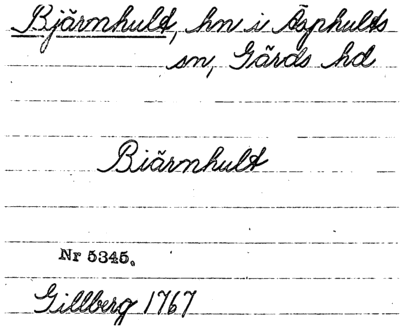 Bjärnhult, hn i Äsphults
sn, Gärds hd
Biärnhult
Nr 5345.
Gillberg 1767